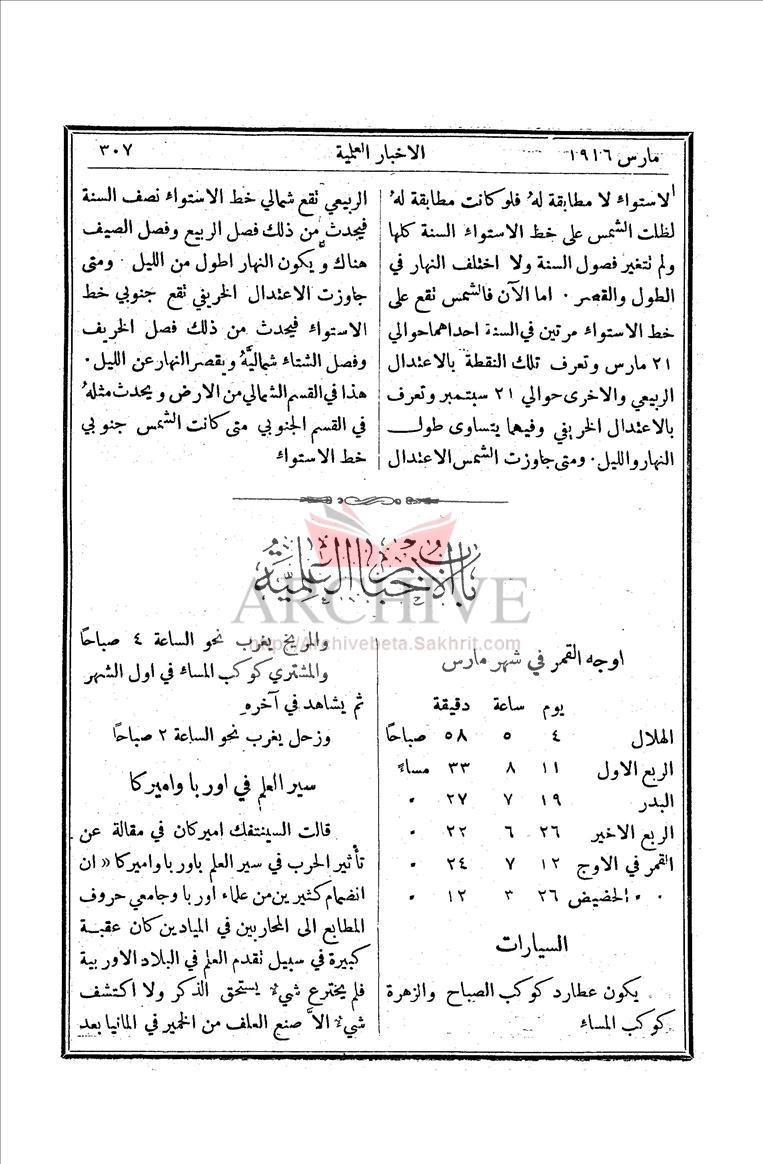 مارس ١٩١٦
الاخبار العلمية
٣٠٧
الاستواء لا مطابقة لهُ فلو كانت مطابقة لهُ
لظلت الشمس على خط الاستواء السنة كلها
ولم نتغير فصول السنة ولا اختلف النهار في
الطول والقصر ٠ اما الآن فالشمس تقع على
خط الاستواء مرتين في السنة احداهما حوالي
٢١ مارس وتعرف تلك النقطة بالاعتدال
الربيعي والاخرى حوالي ٢١ سبتمبر وتعرف
بالاعتدال الخريفي وفيهما يتساوى طول
النهار والليل ٠ ومتى جاوزت الشمس الاعتدال
الربيعي تقع شمالي خط الاستواء نصف السنة
فيحدث من ذلك فصل الربيع وفصل الصيف
هناك ويكون النهار اطول من الليل ٠ ومتى
جاوزت الاعتدال الخريفي تقع جنوبي خط
الاستواء فيحدث من ذلك فصل الخريف
وفصل الشتاء شماليَّهُ ويقصر النهار عن الليل ٠
هذا في القسم الشمالي من الارض ويحدث مثلهُ
في القسم الجنوبي متى كانت الشمس جنوبي
خط الاستواء
باب الاخبار العلمية
ARCHIVE
http://Archivebeta.Sakhrit.com
اوجه القمر في شهر مارس
يوم ساعة دقيقة
الهلال ٤ ٥ ٥٨ صباحًا
الربع الاول ١١ ٨ ٣٣ مساءً
البدر ١٩ ٧ ٢٧ ٠
الربع الاخير ٢٦ ٦ ٢٢ ٠
القمر في الاوج ١٢ ٧ ٢٤ ٠
٠ ٠ الحضيض ٢٦ ٣ ١٢ ٠
السيارات
يكون عطارد كوكب الصباح والزهرة
كوكب المساء
والمريخ يغرب نحو الساعة ٤ صباحًا
والمشتري كوكب المساء في اول الشهر
ثم يشاهد في آخرهِ
وزحل يغرب نحو الساعة ٢ صباحًا
سير العلم في اوربا واميركا
قالت السينتفك اميركان في مقالة عن
تأثير الحرب في سير العلم باوربا واميركا « ان
انضمام كثيرين من علماء اوربا وجامعي حروف
المطابع الى المحاربين في الميادين كان عقبة
كبيرة في سبيل تقدم العلم في البلاد الاوربية
فلم يخترع شيءٌ يستحق الذكر ولا اكتشف
شيءٌ الاَّ صنع العلف من الخمير في المانيا بعد